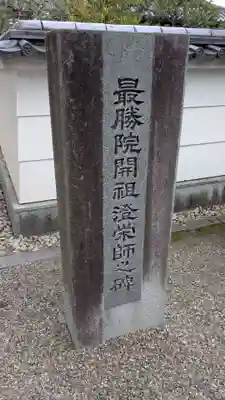 最勝院開祖澄栄師之碑